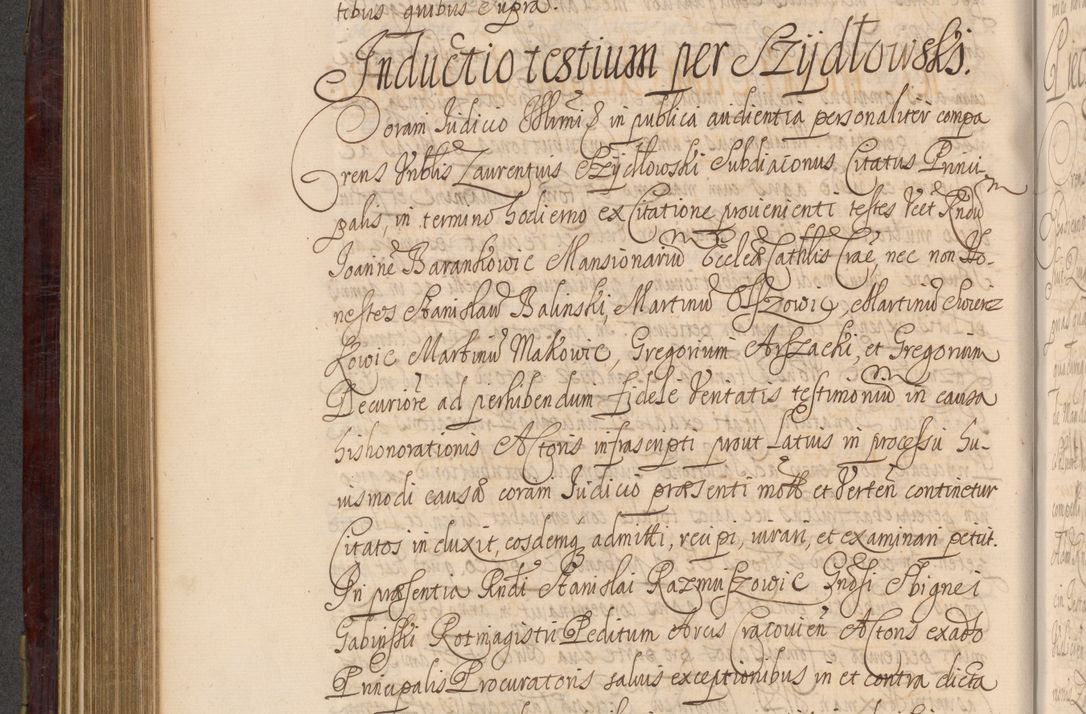 tibus quibus supra.
Inductio testium per Szijdłowski.
Coram Judicio Illmi D in publica audientia personaliter compa
rens Vnblis Laurentius Szijdłowski Subdiaconus Citatus Princi
palis, in termino hodierno ex Citatione provienienti testes Vert Rndũ
Joannẽ Barankowic Mansionariũ Eccleæ Cathlis Craē, nec non Ho-
nestos Stanisłaũ Balinski, Martinũ Olszowic, Martinũ Swierz
kowic Martinũ Makowic, Gregorium Arszacki, et Gregorium
Decuriorẽ ad perhibendum fidele Veritatis testimoniũ in causa
hishonorationis Actoris infrascripti prout Latius in processu hu-
iusmodi causæ coram Judicio præsenti motæ et Verteñ continetur
Citatos induxit, eosdemq admitti, recipi, iurari, et examinari petijt.
In præsentia Rndi Stanislai Kazmirszowic Gnosi Sbignei
Gabinski Rotmagistri Peditum Arcis Cracovieñ Actoris ex adõ
Principalis Procuratoris salvis exceptionibus in et contra dicta